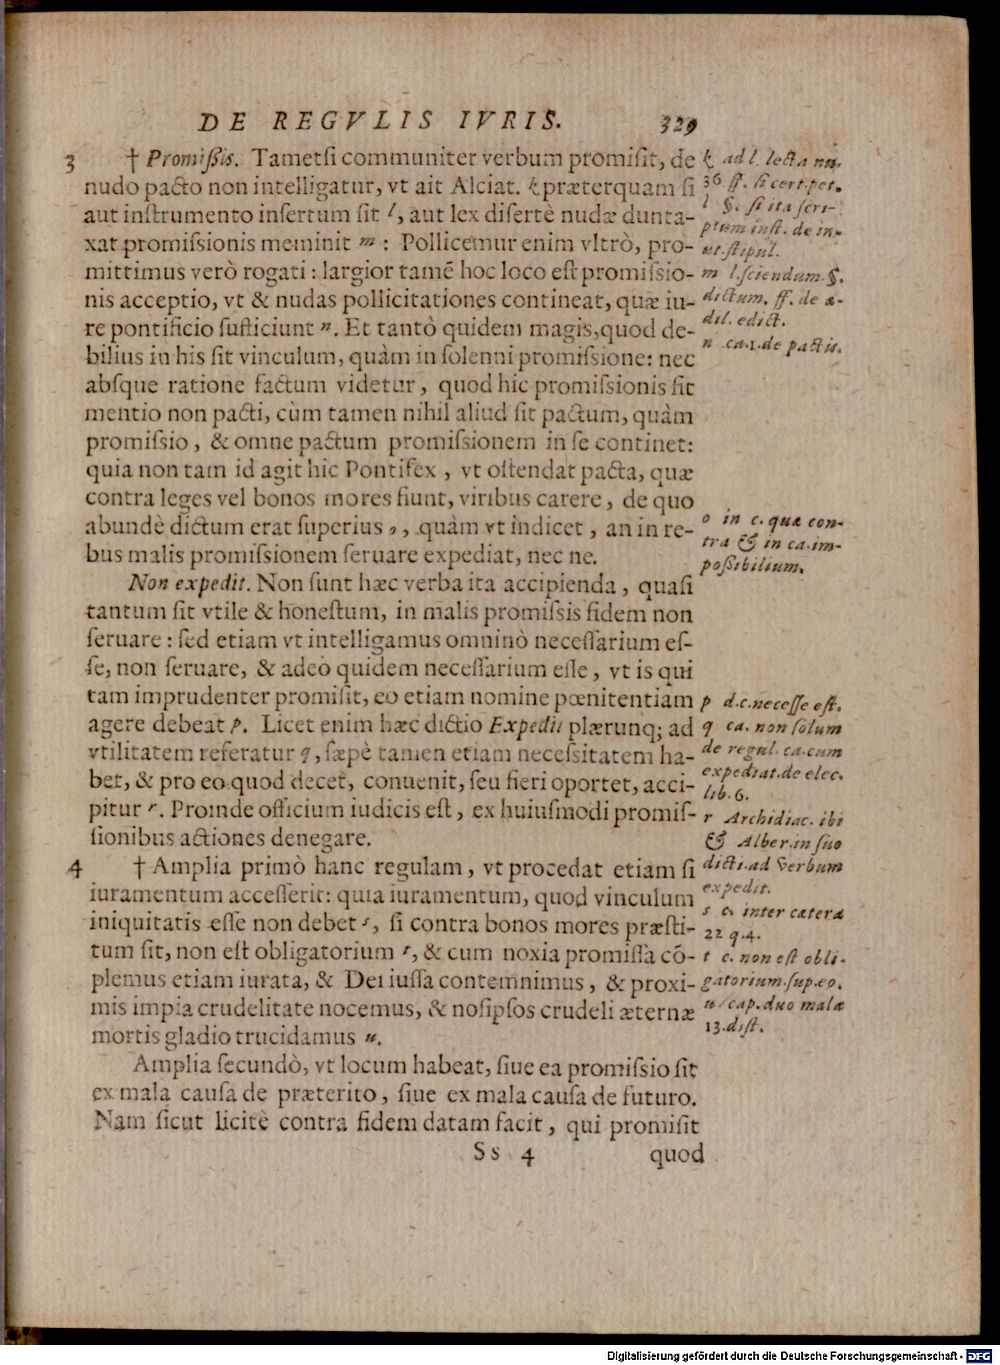 DE REGVLIS IVRIS. 329
3 † Promiſsis. Tametſi communiter verbum promiſit, de
nudo pacto non intelligatur, vt ait Alciat. k præterquam ſi
aut inſtrumento inſertum ſit l, aut lex diſertè nudæ dunta-
xat promiſsionis meminit m : Pollicemur enim vltrò, pro-
mittimus verò rogati : largior tamẽ hoc loco eſt promiſsio-
nis acceptio, vt & nudas pollicitationes contineat, quæ iu-
re pontificio ſufficiunt n. Et tantò quidem magis, quod de-
bilius in his ſit vinculum, quàm in ſolenni promiſsione: nec
abſque ratione factum videtur, quod hic promiſsionis ſit
mentio non pacti, cùm tamen nihil aliud ſit pactum, quàm
promiſsio, & omne pactum promiſsionem in ſe continet:
quia non tam id agit hic Pontifex, vt oſtendat pacta, quæ
contra leges vel bonos mores fiunt, viribus carere, de quo
abundè dictum erat ſuperius o, quàm vt indicet, an in re-
bus malis promiſsionem ſeruare expediat, nec ne.
Non expedit. Non ſunt hæc verba ita accipienda, quaſi
tantum ſit vtile & honeſtum, in malis promiſsis fidem non
ſeruare : ſed etiam vt intelligamus omninò neceſſarium eſ-
ſe, non ſeruare, & adeò quidem neceſſarium eſſe, vt is qui
tam imprudenter promiſit, eo etiam nomine pœnitentiam
agere debeat p. Licet enim hæc dictio Expedit plærunq; ad
vtilitatem referatur q, ſæpè tamen etiam neceſsitatem ha-
bet, & pro eo quod decet, conuenit, ſeu fieri oportet, acci-
pitur r. Proinde officium iudicis eſt, ex huiuſmodi promiſ-
ſionibus actiones denegare.
4 † Amplia primò hanc regulam, vt procedat etiam ſi
iuramentum acceſſerit: quia iuramentum, quod vinculum
iniquitatis eſſe non debet s, ſi contra bonos mores præſti-
tum ſit, non eſt obligatorium t, & cum noxia promiſſa cõ-
plemus etiam iurata, & Dei iuſſa contemnimus, & proxi-
mis impia crudelitate nocemus, & noſipſos crudeli æternæ
mortis gladio trucidamus u.
Amplia ſecundò, vt locum habeat, ſiue ea promiſsio ſit
ex mala cauſa de præterito, ſiue ex mala cauſa de futuro.
Nam ſicut licitè contra fidem datam facit, qui promiſit
Ss 4 quod
k ad l. lecta nu.
36 ff. ſi cert. pet.
l §. ſi ita ſcri-
ptum inſt. de in-
ut. ſtipul.
m l. ſciendum. §.
dictum. ff. de æ-
dil. edict.
n ca. 1. de pactis.
o in c. quæ con-
tra & in ca. im-
poſsibilium.
p d. c. neceſſe eſt.
q ca. non ſolum
de regul. ca. cum
expediat. de elec.
lib. 6.
r Archidiac. ibi
& Alber. in ſuo
dicti. ad verbum
expedit.
s c. inter cætera
22 q. 4.
t c. non eſt obli-
gatorium. ſup. eo.
u cap. duo mala
13. diſt.
Digitalisierung gefördert durch die Deutsche Forschungsgemeinschaft - DFG